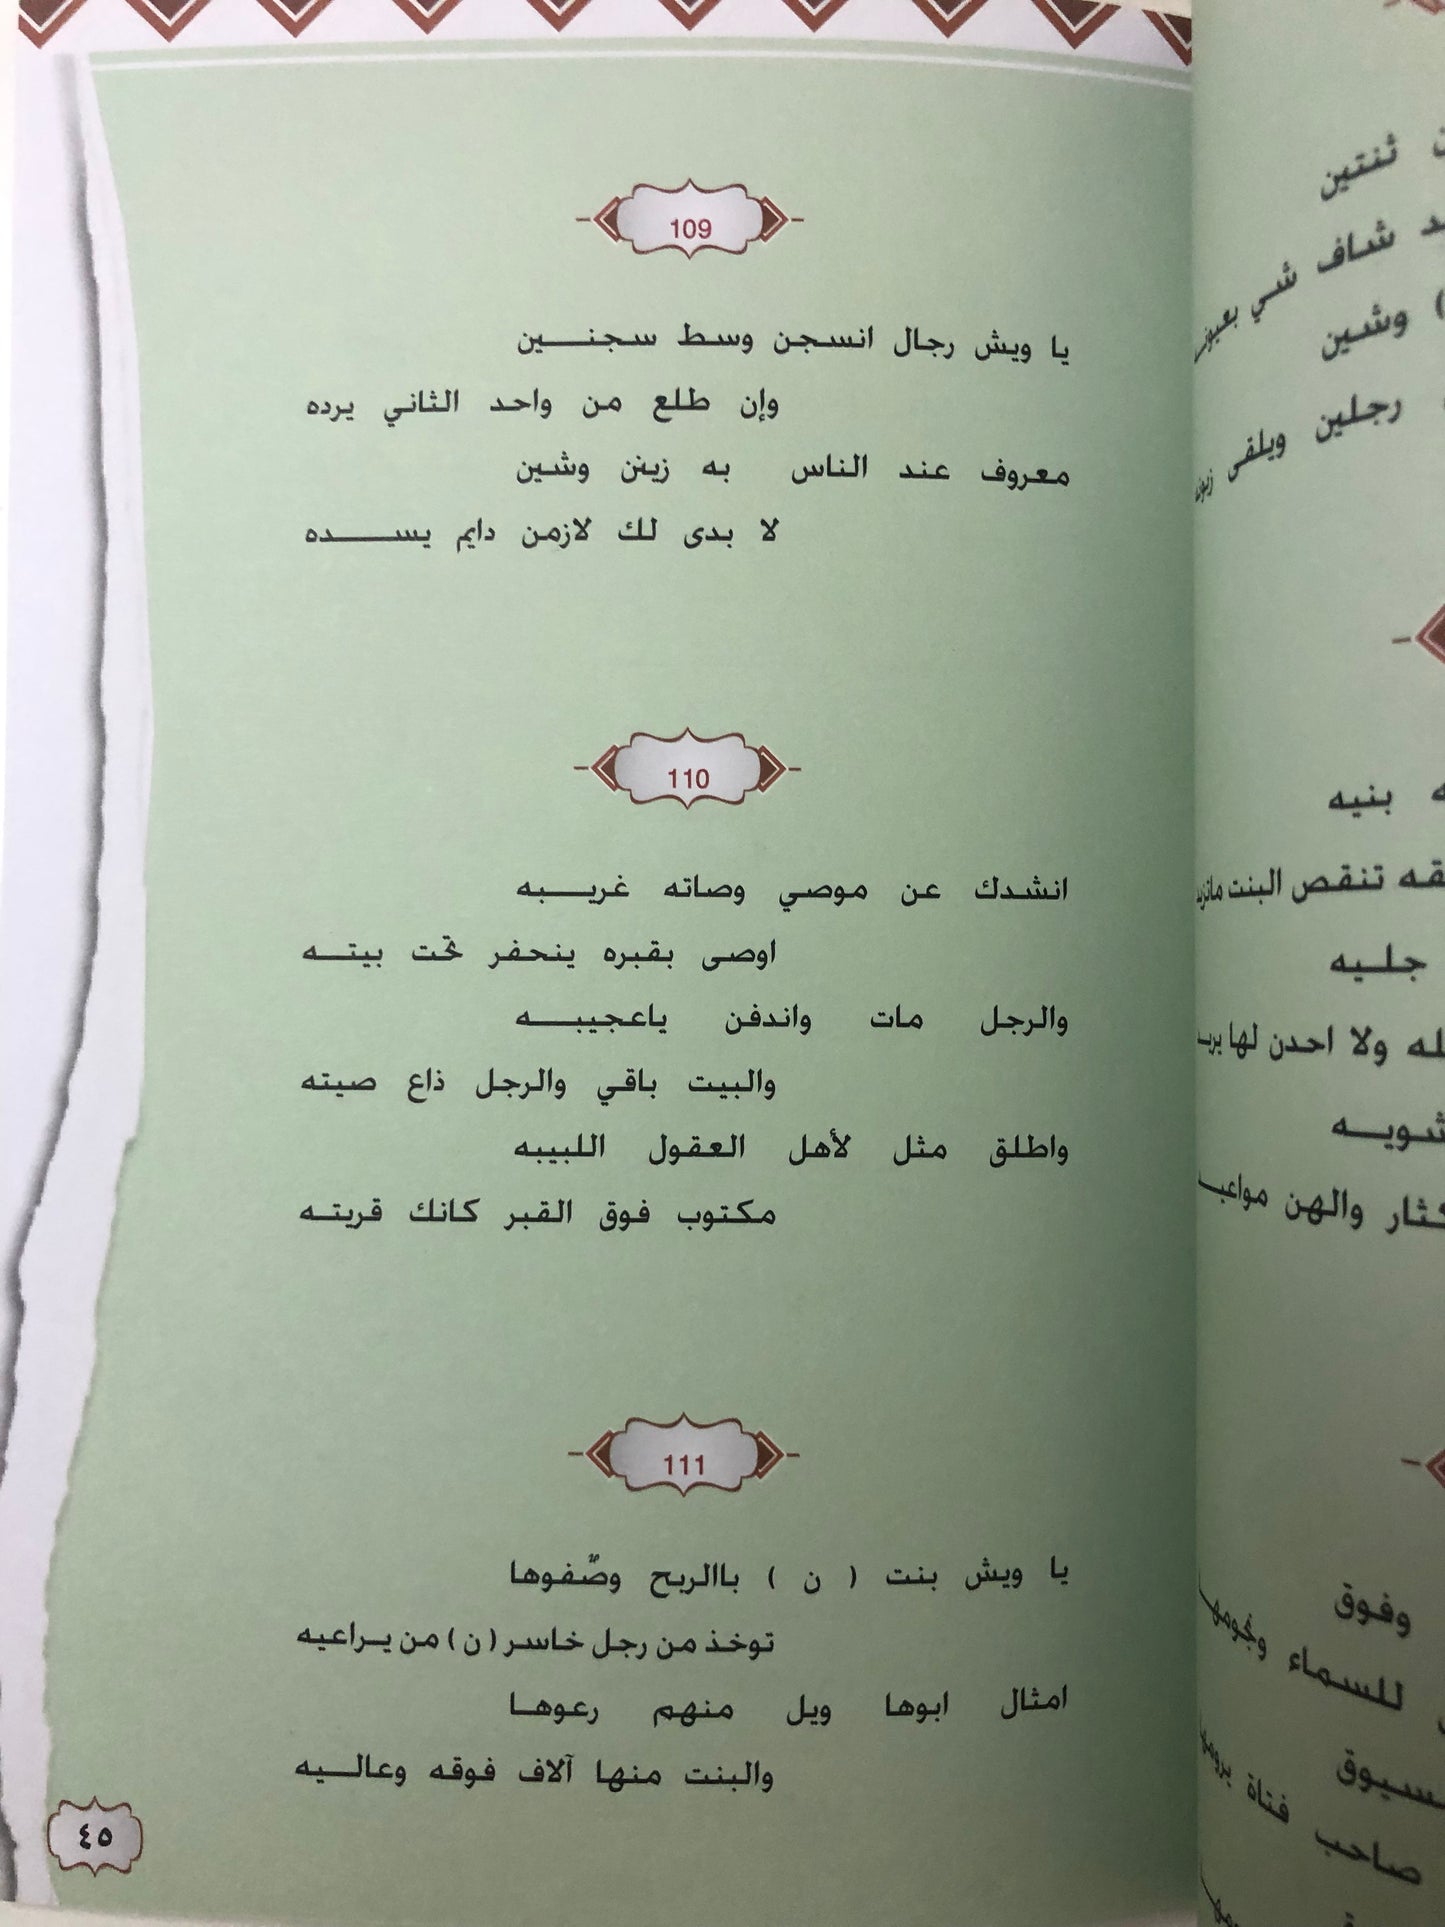 109
يا ويش رجال انسجن وسط سجنـــــين
وإن طلع من واحد الثاني يرده
معروف عند الناس به زينن وشين
لا بدى لك لازمن دايم يســـــده
110
انشدك عن موصي وصاته غريـــــبه
اوصى بقبره ينحفر تحت بيتـــه
والرجل مات واندفن ياعجيبـــــه
والبيت باقي والرجل ذاع صيته
واطلق مثل لأهل العقول اللبيبه
مكتوب فوق القبر كانك قريتـــه
111
يا ويش بنت ( ن ) باالربح وصّفوها
توخذ من رجل خاسر ( ن ) من يـراعيه
امثال ابوها ويل منهم رعوهـــا
والبنت منها آلاف فوقه وعالـــيه
٤٥
ثنتين
شاف شي
وشين
رجلين ويلقى
بنيه
تنقص البنت
جلـــيه
ولا احدن لها
والهن
وفوق
للسماء ونجومها
فتاة
صاحب